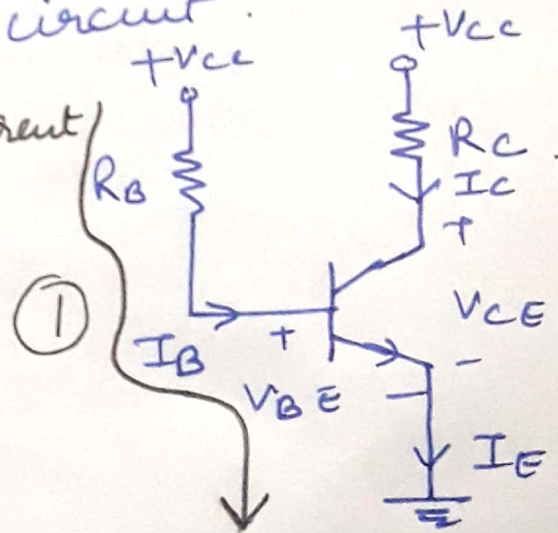 circuit.
+Vcc
+Vcc
RB
RC
IC
+
①
IB
+
VCE
-
VBE
-
IE